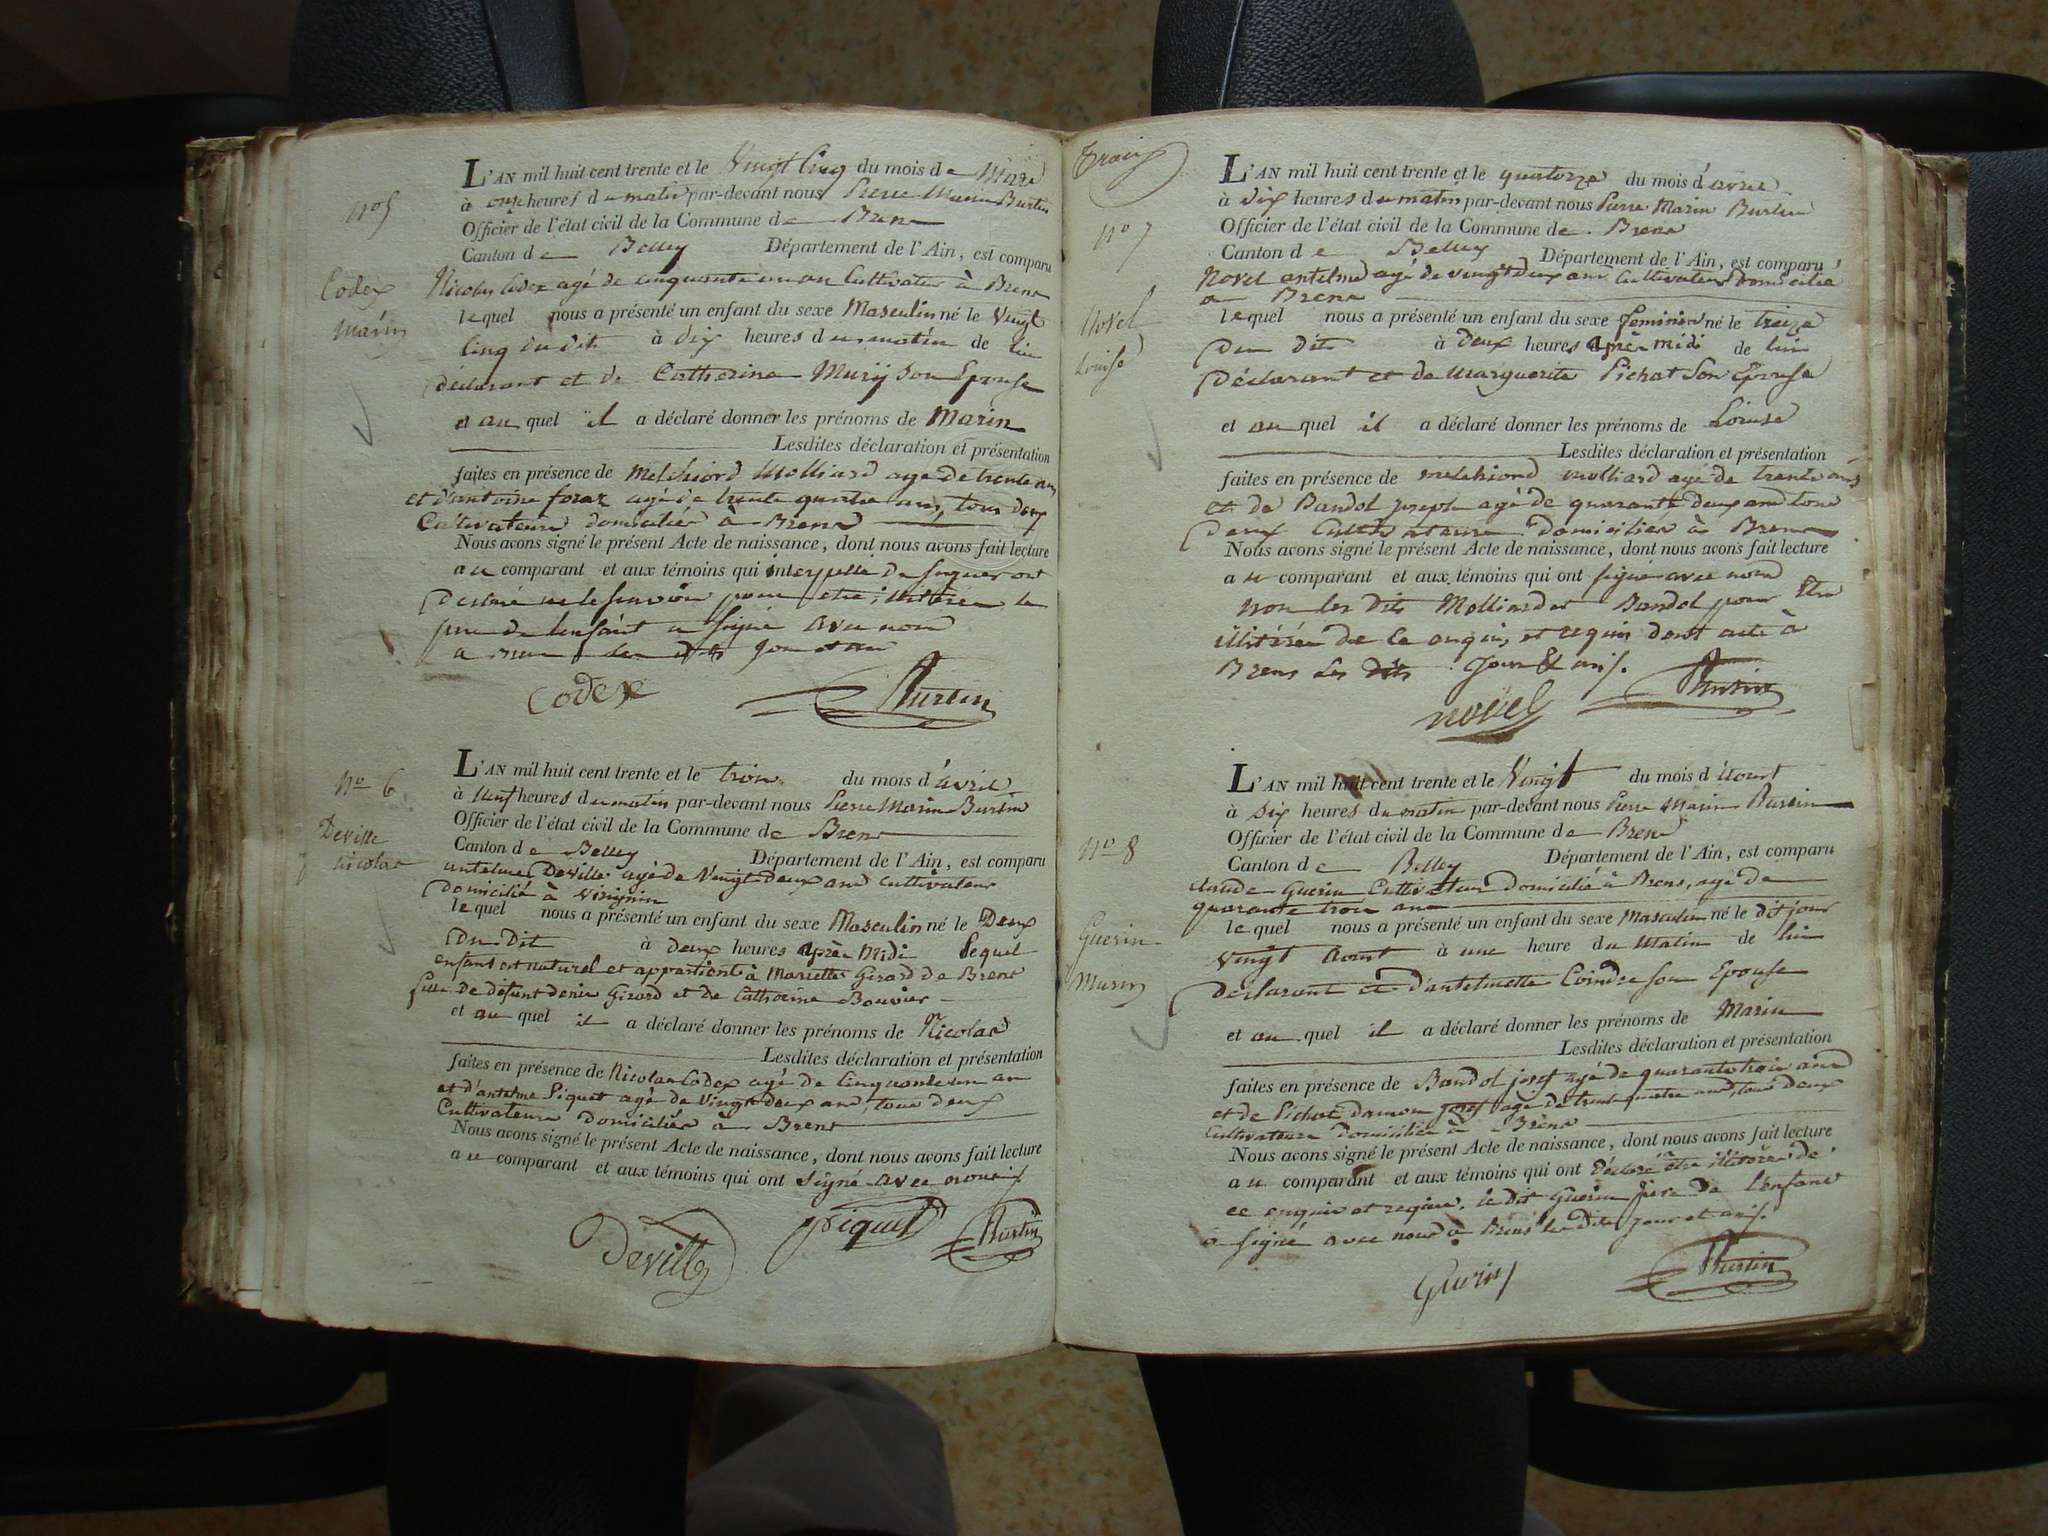 n° 5
Codex
Marin
L'AN mil huit cent trente et le Vingt Cinq du mois de Mars
à onze heures du matin par-devant nous Pierre Marin Burtin
Officier de l'état civil de la Commune de Brens
Canton de Belley Département de l'Ain, est comparu
Nicolas Codex agé de cinquante un an Cultivateur à Brens
lequel nous a présenté un enfant du sexe Masculin né le Vingt
Cinq du dit à dix heures du matin de lui
déclarant et de Catherine Murij son Epouse
et au quel il a déclaré donner les prénoms de Marin
Lesdites déclaration et présentation
faites en présence de Melchiord Molliard agé de trente ans
et d'antoine foraz agé de trente quatre ans, tous deux
Cultivateurs domiciliés à Brens
Nous avons signé le présent Acte de naissance, dont nous avons fait lecture
au comparant et aux témoins qui interpellé de signer ont
Déclaré ne le savoir pour etre illitérés le
pere de lenfant a signé avec nous
a Brens les dits jour et an
Codex Burtin
n° 6
Deville
Nicolas
L'AN mil huit cent trente et le trois du mois d'avril
à Neuf heures du matin par-devant nous Pierre Marin Burtin
Officier de l'état civil de la Commune de Brens
Canton de Belley Département de l'Ain, est comparu
antelme Deville agé de Vingt deux ans cultivateur
domicilié à Virignin
lequel nous a présenté un enfant du sexe Masculin né le Deux
Du Dit à deux heures après Midi lequel
enfant est naturel et appartient à Mariette Girard de Brens
fille de défunt denis Girard et de Catherine Bouvier
et au quel il a déclaré donner les prénoms de Nicolas
Lesdites déclaration et présentation
faites en présence de Nicolas Codex agé de Cinquante un an
et d'antelme Piquet agé de Vingt deux ans, tous deux
Cultivateurs domiciliés à Brens
Nous avons signé le présent Acte de naissance, dont nous avons fait lecture
au comparant et aux témoins qui ont signé avec nous
Deville Piquet Burtin
n° 7
Novel
Louise
L'AN mil huit cent trente et le quatorze du mois d'avril
à dix heures du matin par-devant nous Pierre Marin Burtin
Officier de l'état civil de la Commune de Brens
Canton de Belley Département de l'Ain, est comparu
Novel antelme agé de vingt deux ans Cultivateur Domicilié
a Brens
lequel nous a présenté un enfant du sexe feminin né le treize
Du Dit à Deux heures après midi de lui
Déclarant et de Marguerite Pichat Son Epouse
et au quel il a déclaré donner les prénoms de Louise
Lesdites déclaration et présentation
faites en présence de melchiord molliard agé de trente ans
et de Bandol joseph agé de quarante deux ans tous
deux Cultivateurs Domiciliés à Brens
Nous avons signé le présent Acte de naissance, dont nous avons fait lecture
au comparant et aux témoins qui ont signé avec nous
non les dits Molliard et Bandol pour Etre
illitérés de ce enquis, et requis dont acte à
Brens Les dits Jour & an
Novel Burtin
n° 8
Guerin
Marin
L'AN mil huit cent trente et le Vingt du mois d'Aoust
à Six heures du matin par-devant nous Pierre Marin Burtin
Officier de l'état civil de la Commune de Brens
Canton de Belley Département de l'Ain, est comparu
claude Guerin Cultivateur domicilié à Brens, agé de
quarante trois ans
lequel nous a présenté un enfant du sexe Masculin né le dit jour
Vingt Aoust à une heure du Matin de lui
déclarant et d'antelmette Coindre son Epouse
et au quel il a déclaré donner les prénoms de Marin
Lesdites déclaration et présentation
faites en présence de Bandol josef agé de quarante trois ans
et de Pichat damou josef agé de trente quatre ans, tous deux
Cultivateurs domiciliés à Brens
Nous avons signé le présent Acte de naissance, dont nous avons fait lecture
au comparant et aux témoins qui ont Déclaré etre illitérés de
ce enquis et requis, le dit Guerin Pere de l'enfant
a signé avec nous à Brens les dits jour et an
Guerin Burtin